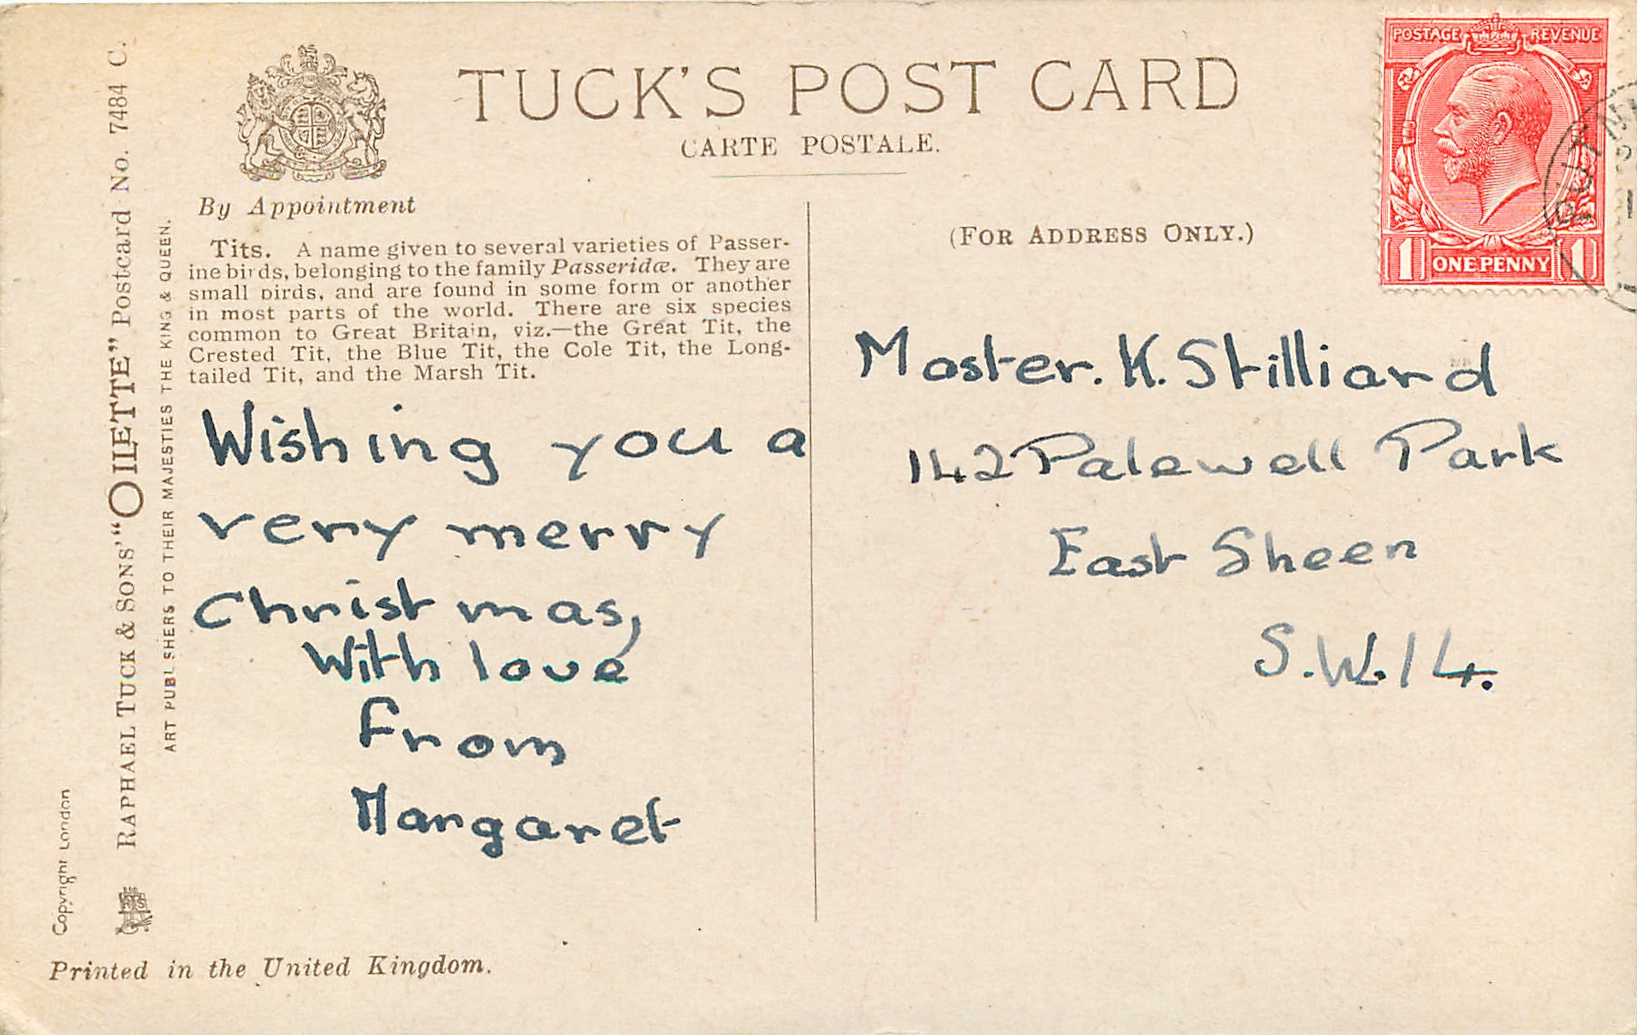 TUCK'S POST CARD
CARTE POSTALE.
By Appointment
(FOR ADDRESS ONLY.)
Tits. A name given to several varieties of Passer-
ine birds, belonging to the family Passeridæ. They are
small birds, and are found in some form or another
in most parts of the world. There are six species
common to Great Britain, viz.—the Great Tit, the
Crested Tit, the Blue Tit, the Cole Tit, the Long-
tailed Tit, and the Marsh Tit.
Wishing you a
very merry
Christmas,
With love
from
Margaret
Master. K. Stilliard
142 Palewell Park
East Sheen
S.W.14.
POSTAGE REVENUE
1 ONE PENNY 1
RAPHAEL TUCK & SONS' "OILETTE" Postcard No. 7484 C.
ART PUBLISHERS TO THEIR MAJESTIES THE KING & QUEEN.
Copyright London
Printed in the United Kingdom.